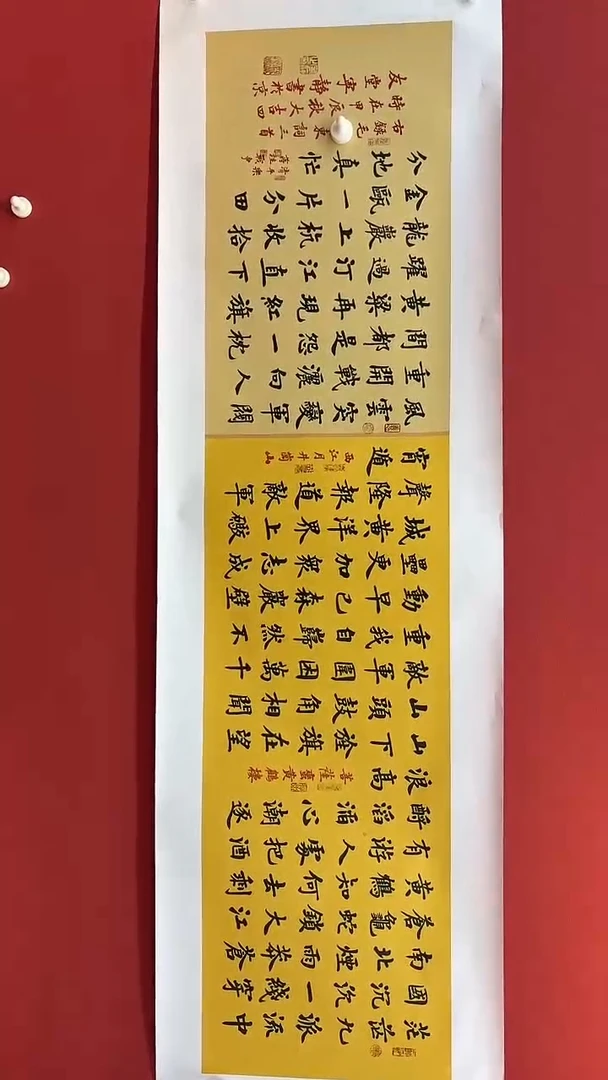 茫茫九派流中
國沉沉一綫穿
南北煙雨莽蒼
蒼龜蛇鎖大江
黃鶴知何去剩
有游人處把酒
酹滔滔心潮逐
浪高
菩薩蠻黃鶴樓
山下旌旗在望
山頭鼓角相聞
敵軍圍困萬千
重我自巋然不
動早已森嚴壁
壘更加衆志成
城黃洋界上礮
聲隆報道敵軍
宵遁
西江月井崗山
風雲突變軍閥
重開戰灑向人
間都是怨一枕
黃粱再現紅旗
躍過汀江直下
龍巖上杭收拾
金甌一片分田
分地真忙
清平樂蔣桂戰爭
右錄毛東詞三首
時在甲辰秋大吉四
友堂寧靜書於京